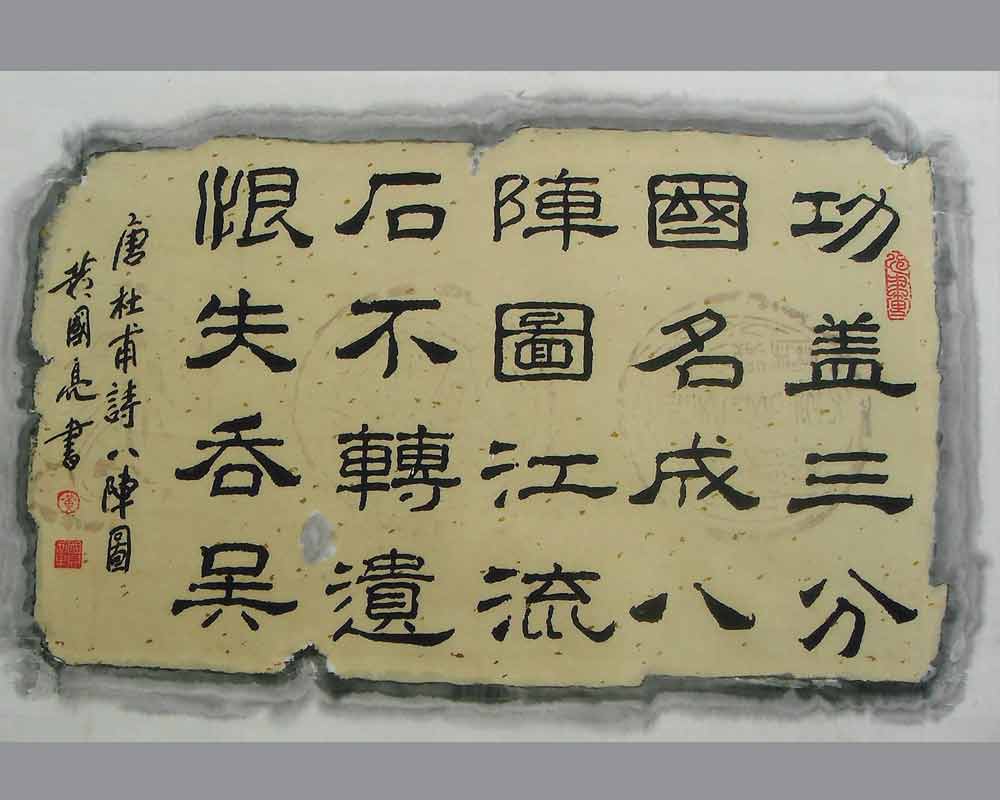 功盖三分
國名成八
陣圖江流
石不轉遺
恨失吞吴
唐杜甫詩八陣圖
黄國亮書